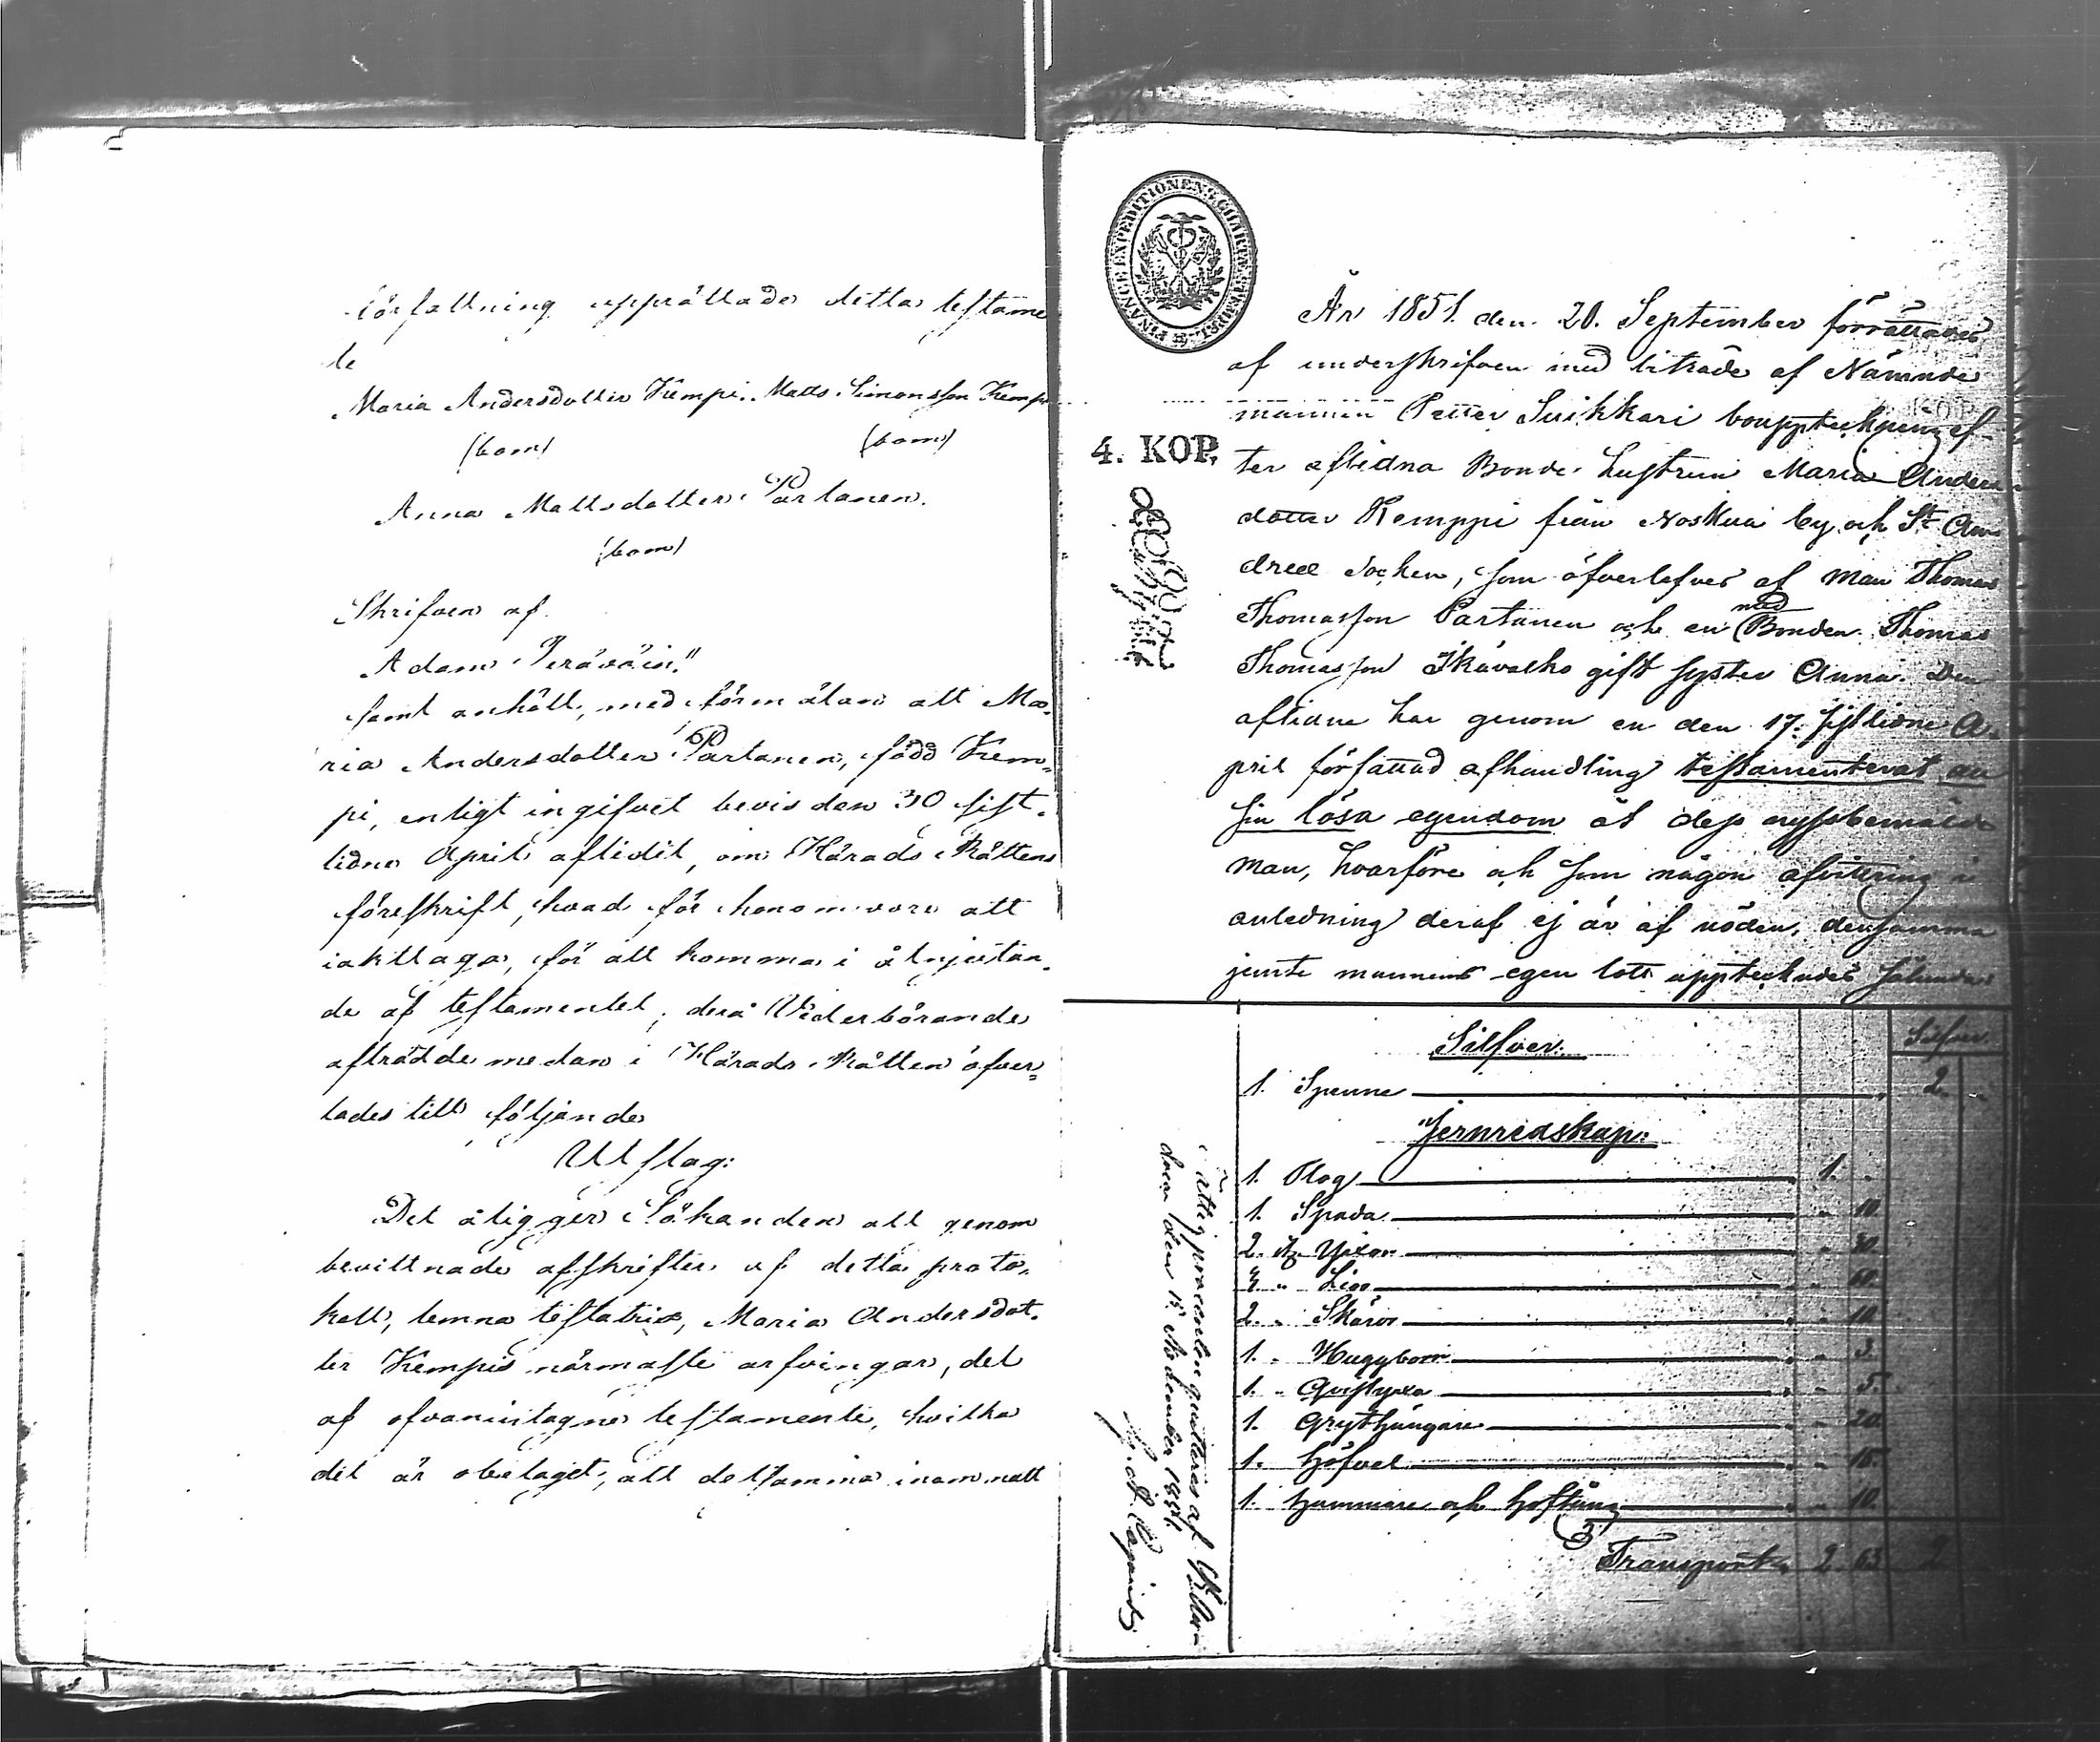 författning upprättade detta testame
te
Maria Andersdotter Kempi. Matts Simonsson Kempi
(bom) (bom)
Anna Mattsdotter Partanen.
(bom)
Skrifven af
Adam Peräväin."
samt anhöll, med förmälan att Ma-
ria Andersdotter Partanen, född Kem-
pi, enligt ingifvet bevis den 30 sist-
lidne April aflidit, om Härads Rättens
föreskrift, hvad för honom vore att
iakttaga, för att komma i åtnjutan-
de af testamentet; derå Vederbörande
afträdde medan i Härads Rätten öfver-
lades till följande
Utslag:
Det åligger Sökanden att genom
bevittnade afskrifter af detta proto-
koll, lemna testatrix, Maria Andersdot-
ter Kempis närmaste arfvingar, del
af ofvanintagne testamente, hvilka
det är obetaget, att detsamma inom natt
FINANCE EXPEDITIONENS CHARTÆ STEMPEL
4. KOP.
År 1851. den 20. September förrättades
af underskrifven med biträde af Nämnde
mannen Petter Suikkari bouppteckning ef-
ter aflidna Bonde hustrun Maria Anders
dotter Kemppi från Noskua by och St. An
dreæ Socken, som öfverlefves af man Thomas
Thomasson Partanen och en med Bonden Thomas
Thomasson Ikävalko gift syster Anna. Den
aflidne har genom en den 17. sistlidne A-
pril författad afhandling testamenterat all
sin lösa egendom åt dess nyssbemälde
man, hvarföre och som någon afvittring i
anledning deraf ej är af nöden, densamma
jemte mannens egen lott upptecknades sålunda
Silfver. Silfver
1. Spenne 2.
Jernredskap:
1. Plog 1.
1. Spada 10.
2. st. Yxor 30.
3 " Liar 60.
2. " Skäror 10.
1. " Huggborr 3.
1. " Gustyxa 5.
1. Grythängare 20.
1. Höfvel 15.
1. Hammare och Hoftång 10.
Transport 2. 63 2
i åttij procenten quitteras af Viller-
den 15